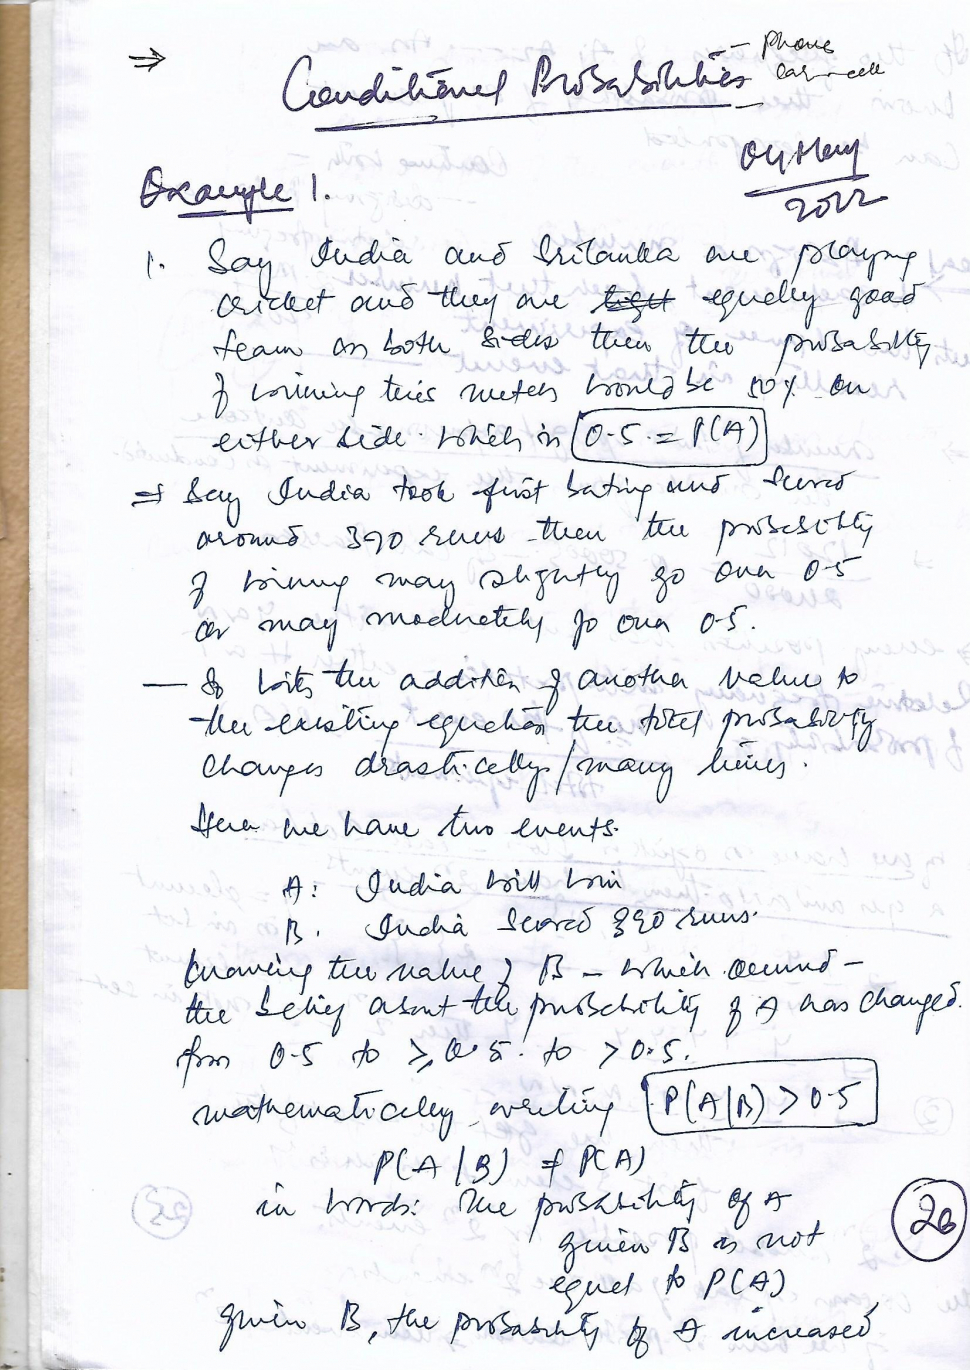 ⇒
Conditional Probabilities
– Phone
04/May
2022
Example 1.
1. Say India and Srilanka are playing
cricket and they are equally good
team on both sides then the probability
of winning this match would be 50% on
either side. which is 0.5 = P(A)
⇒ Say India took first bating and scored
around 390 runs then the probability
of winning may slightly go over 0.5
or may moderately go over 0.5.
— So with the addition of another value to
the existing equation the total probability
changes drastically/many times.
Here we have two events.
A: India will win
B. India scored 390 runs.
knowing the value of B – which occured –
the belief about the probability of A has changed.
from 0.5 to ≥ 0.5. to > 0.5.
mathematically writing P(A|B) > 0.5
P(A|B) ≠ P(A)
in words: The probability of A
given B is not
equal to P(A)
given B, the probability of A increased